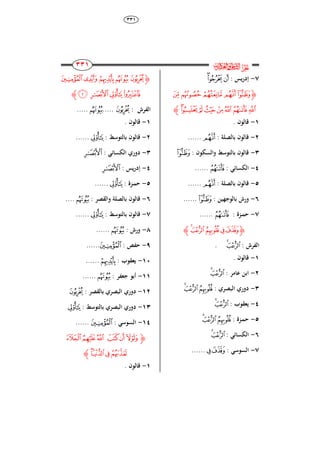 ٣٣١
٣٣١
٧- إدريس : أَن يَخۡرُجُواْۖ
﴿ وَظَنُّوٓاْ أَنَّهُم مَّانِعَتُهُمۡ حُصُونُهُم مِّنَ
ٱللَّهِ فَأَتَىٰهُمُ ٱللَّهُ مِنۡ حَيۡثُ لَمۡ يَحۡتَسِبُواْۖ ﴾
١- قالون .
٢- قالون بالصلة : أَنَّهُمۥ ......
٣- قالون بالتوسط والسكون : وَظَنُّوٓاْ
٤- الكسائي : فَأَتَىٰهُمُ ......
٥- قالون بالصلة : أَنَّهُمۥ ......
٦- ورش بالوجهين : وَظَنُّوٓاْ ......
٧- حمزة : فَأَتَىٰهُمُ ......
﴿ وَقَذَفَ فِي قُلُوبِهِمُ ٱلرُّعۡبَۚ ﴾
الفرش : ٱلرُّعۡبَ .
١- قالون .
٢- ابن عامر : ٱلرُّعُبَ
٣- دوري البصري : قُلُوبِهِمِ ٱلرُّعۡبَ
٤- يعقوب : ٱلرُّعُبَ
٥- حمزة : قُلُوبِهُمُ ٱلرُّعۡبَ
٦- الكسائي : ٱلرُّعُبَ
٧- السوسي : وَقَذَف فِّي ......
﴿ يُخۡرِبُونَ بُيُوتَهُم بِأَيۡدِيهِمۡ وَأَيۡدِي ٱلۡمُؤۡمِنِينَ
فَٱعۡتَبِرُواْ يَٰٓأُوْلِي ٱلۡأَبۡصَٰرِ ٢ ﴾
الفرش : يُخۡرِبُونَ .... بُيُوتَهُم ......
١- قالون .
٢- قالون بالتوسط : يَٰٓأُوْلِي ......
٣- دوري الكسائي : ٱلۡأَبۡصَٰرِ
٤- إدريس : ٱلۡأَبۡصَٰرِ
٥- حمزة : يَٰٓأُوْلِي ......
٦- قالون بالصلة والقصر : بُيُوتَهُم ....
٧- قالون بالتوسط : يَٰٓأُوْلِي ......
٨- ورش : بُيُوتَهُم ......
٩- حفص : ٱلۡمُؤۡمِنِينَ ......
١٠- يعقوب : بِأَيۡدِيهُمۡ ......
١١- أبو جعفر : بُيُوتَهُم ......
١٢- دوري البصري بالقصر : يُخَرِّبُونَ
١٣- دوري البصري بالتوسط : يَٰٓأُوْلِي
١٤- السوسي : ٱلۡمُومِنِينَ ......
﴿ وَلَوۡلَآ أَن كَتَبَ ٱللَّهُ عَلَيۡهِمُ ٱلۡجَلَآءَ
لَعَذَّبَهُمۡ فِي ٱلدُّنۡيَاۖ ﴾
١- قالون .